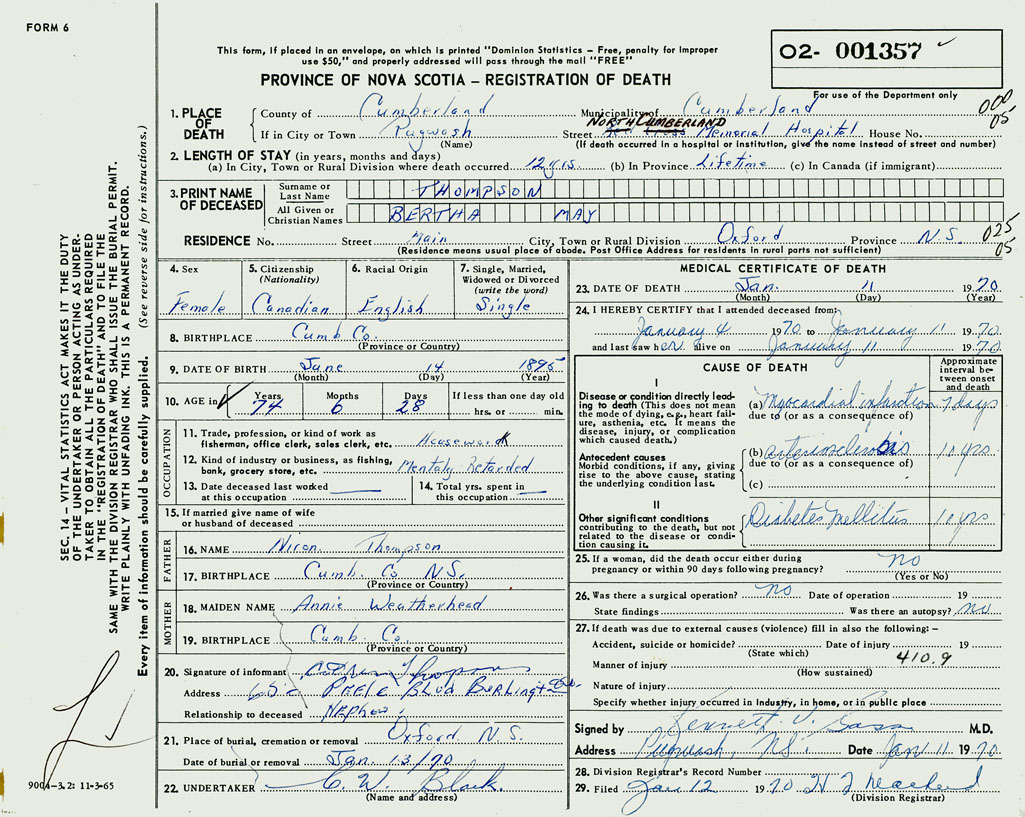 FORM 6
This form, if placed in an envelope, on which is printed "Dominion Statistics – Free, penalty for improper
use $50," and properly addressed will pass through the mail "FREE"
PROVINCE OF NOVA SCOTIA – REGISTRATION OF DEATH
02- 001357
For use of the Department only
1. PLACE OF DEATH
County of Cumberland Municipality of Cumberland 000 05
If in City or Town Pugwash (Name) Street NORTH CUMBERLAND Memorial Hospital House No.
(If death occurred in a hospital or institution, give the name instead of street and number)
2. LENGTH OF STAY (in years, months and days)
(a) In City, Town or Rural Division where death occurred 12 yrs. (b) In Province Lifetime (c) In Canada (if immigrant)
3. PRINT NAME OF DECEASED
Surname or Last Name THOMPSON
All Given or Christian Names BERTHA MAY
RESIDENCE No. Street Main City, Town or Rural Division Oxford Province N.S. 025 05
(Residence means usual place of abode. Post Office Address for residents in rural parts not sufficient)
4. Sex Female
5. Citizenship (Nationality) Canadian
6. Racial Origin English
7. Single, Married, Widowed or Divorced (write the word) Single
8. BIRTHPLACE Cumb Co.
(Province or Country)
9. DATE OF BIRTH June 14 1895
(Month) (Day) (Year)
10. AGE in Years 74 Months 6 Days 28 If less than one day old hrs. or min.
OCCUPATION
11. Trade, profession, or kind of work as fisherman, office clerk, sales clerk, etc. Housework
12. Kind of industry or business, as fishing, bank, grocery store, etc. Mentaly Retarded
13. Date deceased last worked at this occupation
14. Total yrs. spent in this occupation
15. If married give name of wife or husband of deceased
FATHER
16. NAME Thompson
17. BIRTHPLACE Cumb. Co N.S.
(Province or Country)
MOTHER
18. MAIDEN NAME Annie Weatherhead
19. BIRTHPLACE Cumb. Co.
(Province or Country)
20. Signature of informant Thompson
Address PEELE Blvd Burlington
Relationship to deceased Nephew
21. Place of burial, cremation or removal Oxford, N.S.
Date of burial or removal Jan. 13/70
22. UNDERTAKER C. W. Black
(Name and address)
MEDICAL CERTIFICATE OF DEATH
23. DATE OF DEATH Jan. 11 1970
(Month) (Day) (Year)
24. I HEREBY CERTIFY that I attended deceased from:
January 4 1970 to January 11 1970
and last saw her alive on January 11 1970
CAUSE OF DEATH
Approximate interval between onset and death
I
Disease or condition directly leading to death (This does not mean the mode of dying, e.g., heart failure, asthenia, etc. It means the disease, injury, or complication which caused death.)
(a) Myocardial infarction 7 days
due to (or as a consequence of)
Antecedent causes
Morbid conditions, if any, giving rise to the above cause, stating the underlying condition last.
(b) arteriosclerosis 10 yrs.
due to (or as a consequence of)
(c)
II
Other significant conditions contributing to the death, but not related to the disease or condition causing it.
Diabetes Mellitus 10 yrs
25. If a woman, did the death occur either during pregnancy or within 90 days following pregnancy? no
(Yes or No)
26. Was there a surgical operation? no Date of operation 19
State findings Was there an autopsy? no
27. If death was due to external causes (violence) fill in also the following: –
Accident, suicide or homicide? Date of injury 19
(State which)
Manner of injury 410.9
(How sustained)
Nature of injury
Specify whether injury occurred in industry, in home, or in public place
Signed by M.D.
Address Pugwash, N.S. Date Jan 11 1970
28. Division Registrar's Record Number
29. Filed Jan 12 1970
(Division Registrar)
SEC. 14 – VITAL STATISTICS ACT MAKES IT THE DUTY
OF THE UNDERTAKER OR PERSON ACTING AS UNDER-
TAKER TO OBTAIN ALL THE PARTICULARS REQUIRED
IN THE "REGISTRATION OF DEATH" AND TO FILE THE
SAME WITH THE DIVISION REGISTRAR WHO SHALL ISSUE THE BURIAL PERMIT.
WRITE PLAINLY WITH UNFADING INK. THIS IS A PERMANENT RECORD.
Every item of information should be carefully supplied. (See reverse side for instructions.)
11-3-65